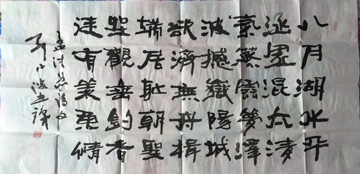 八月湖水平
涵虚混太清
氣蒸雲夢澤
波撼嶽陽城
欲濟無舟楫
端居耻聖明
坐觀垂釣者
徒有羡魚情
孟浩然詩